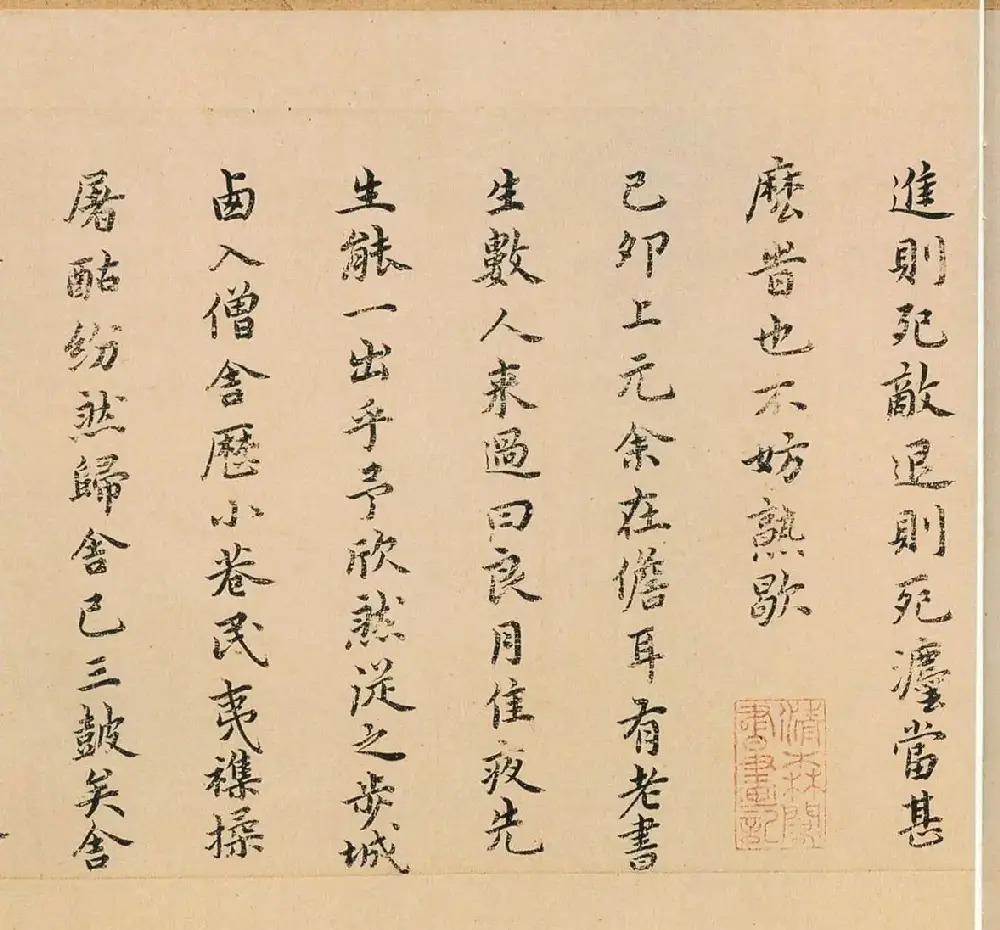 進則死敵退則死灋當甚
麼旹也不妨熟歇
己卯上元余在儋耳有老書
生數人来過曰良月佳夜先
生能一出乎予欣然從之步城
卥入僧舍歷小巷民夷襍揉
屠酤紛然歸舍已三鼓矣舍
清森閣
書畫記